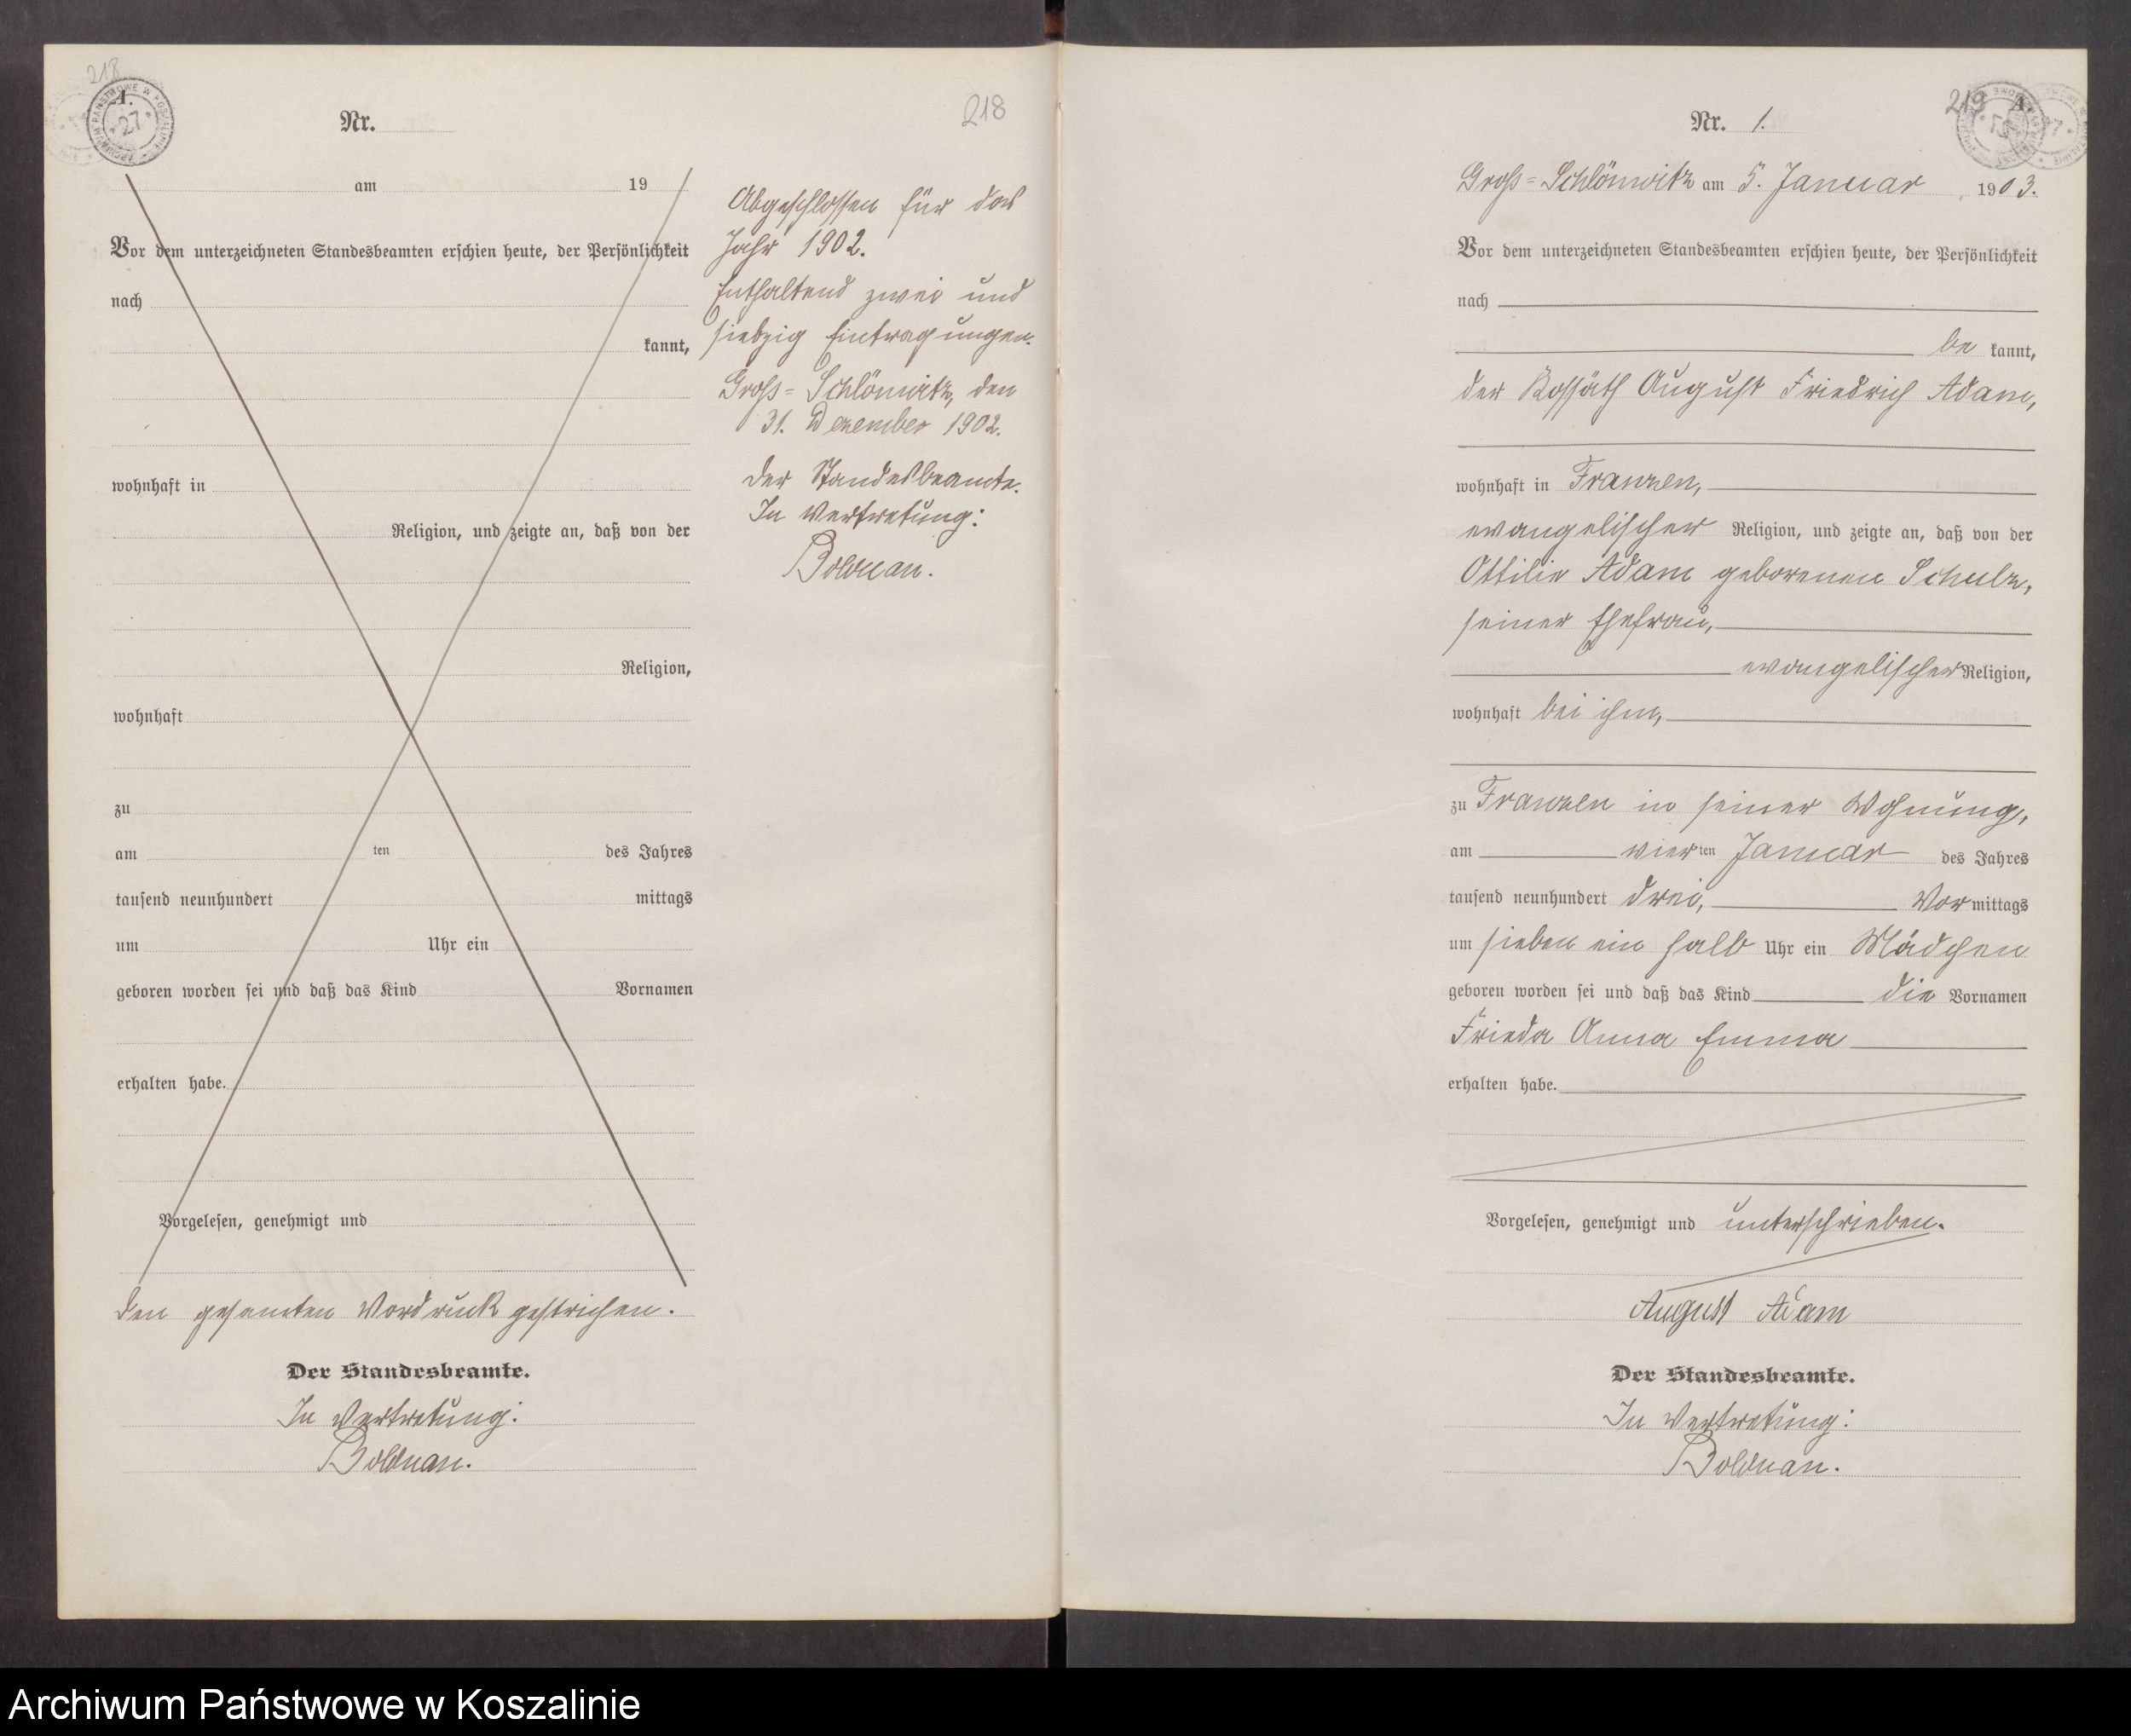 218
A.
Nr.
am 19
Vor dem unterzeichneten Standesbeamten erschien heute, der Persönlichkeit
nach
kannt,
wohnhaft in
Religion, und zeigte an, daß von der
Religion,
wohnhaft
zu
am ten des Jahres
tausend neunhundert mittags
um Uhr ein
geboren worden sei und daß das Kind Vornamen
erhalten habe.
Vorgelesen, genehmigt und
den gesamten Vordruck gestrichen.
Der Standesbeamte.
In Vertretung:
Bolduan.
218
Abgeschlossen für das
Jahr 1902.
Enthaltend zwei und
siebzig Eintragungen.
Gross=Schlönwitz, den
31. Dezember 1902.
Der Standesbeamte.
In Vertretung:
Bolduan.
219
A.
Nr. 1.
Gross=Schlönwitz am 5. Januar 1903.
Vor dem unterzeichneten Standesbeamten erschien heute, der Persönlichkeit
nach
be kannt,
der Kossäth August Friedrich Adam,
wohnhaft in Franzen,
evangelischer Religion, und zeigte an, daß von der
Ottilie Adam geborenen Schulz,
seiner Ehefrau,
evangelischer Religion,
wohnhaft bei ihm,
zu Franzen in seiner Wohnung,
am vierten Januar des Jahres
tausend neunhundert drei, Vormittags
um sieben ein halb Uhr ein Mädchen
geboren worden sei und daß das Kind die Vornamen
Frieda Anna Emma
erhalten habe.
Vorgelesen, genehmigt und unterschrieben.
August Adam
Der Standesbeamte.
In Vertretung:
Bolduan.
Archiwum Państwowe w Koszalinie